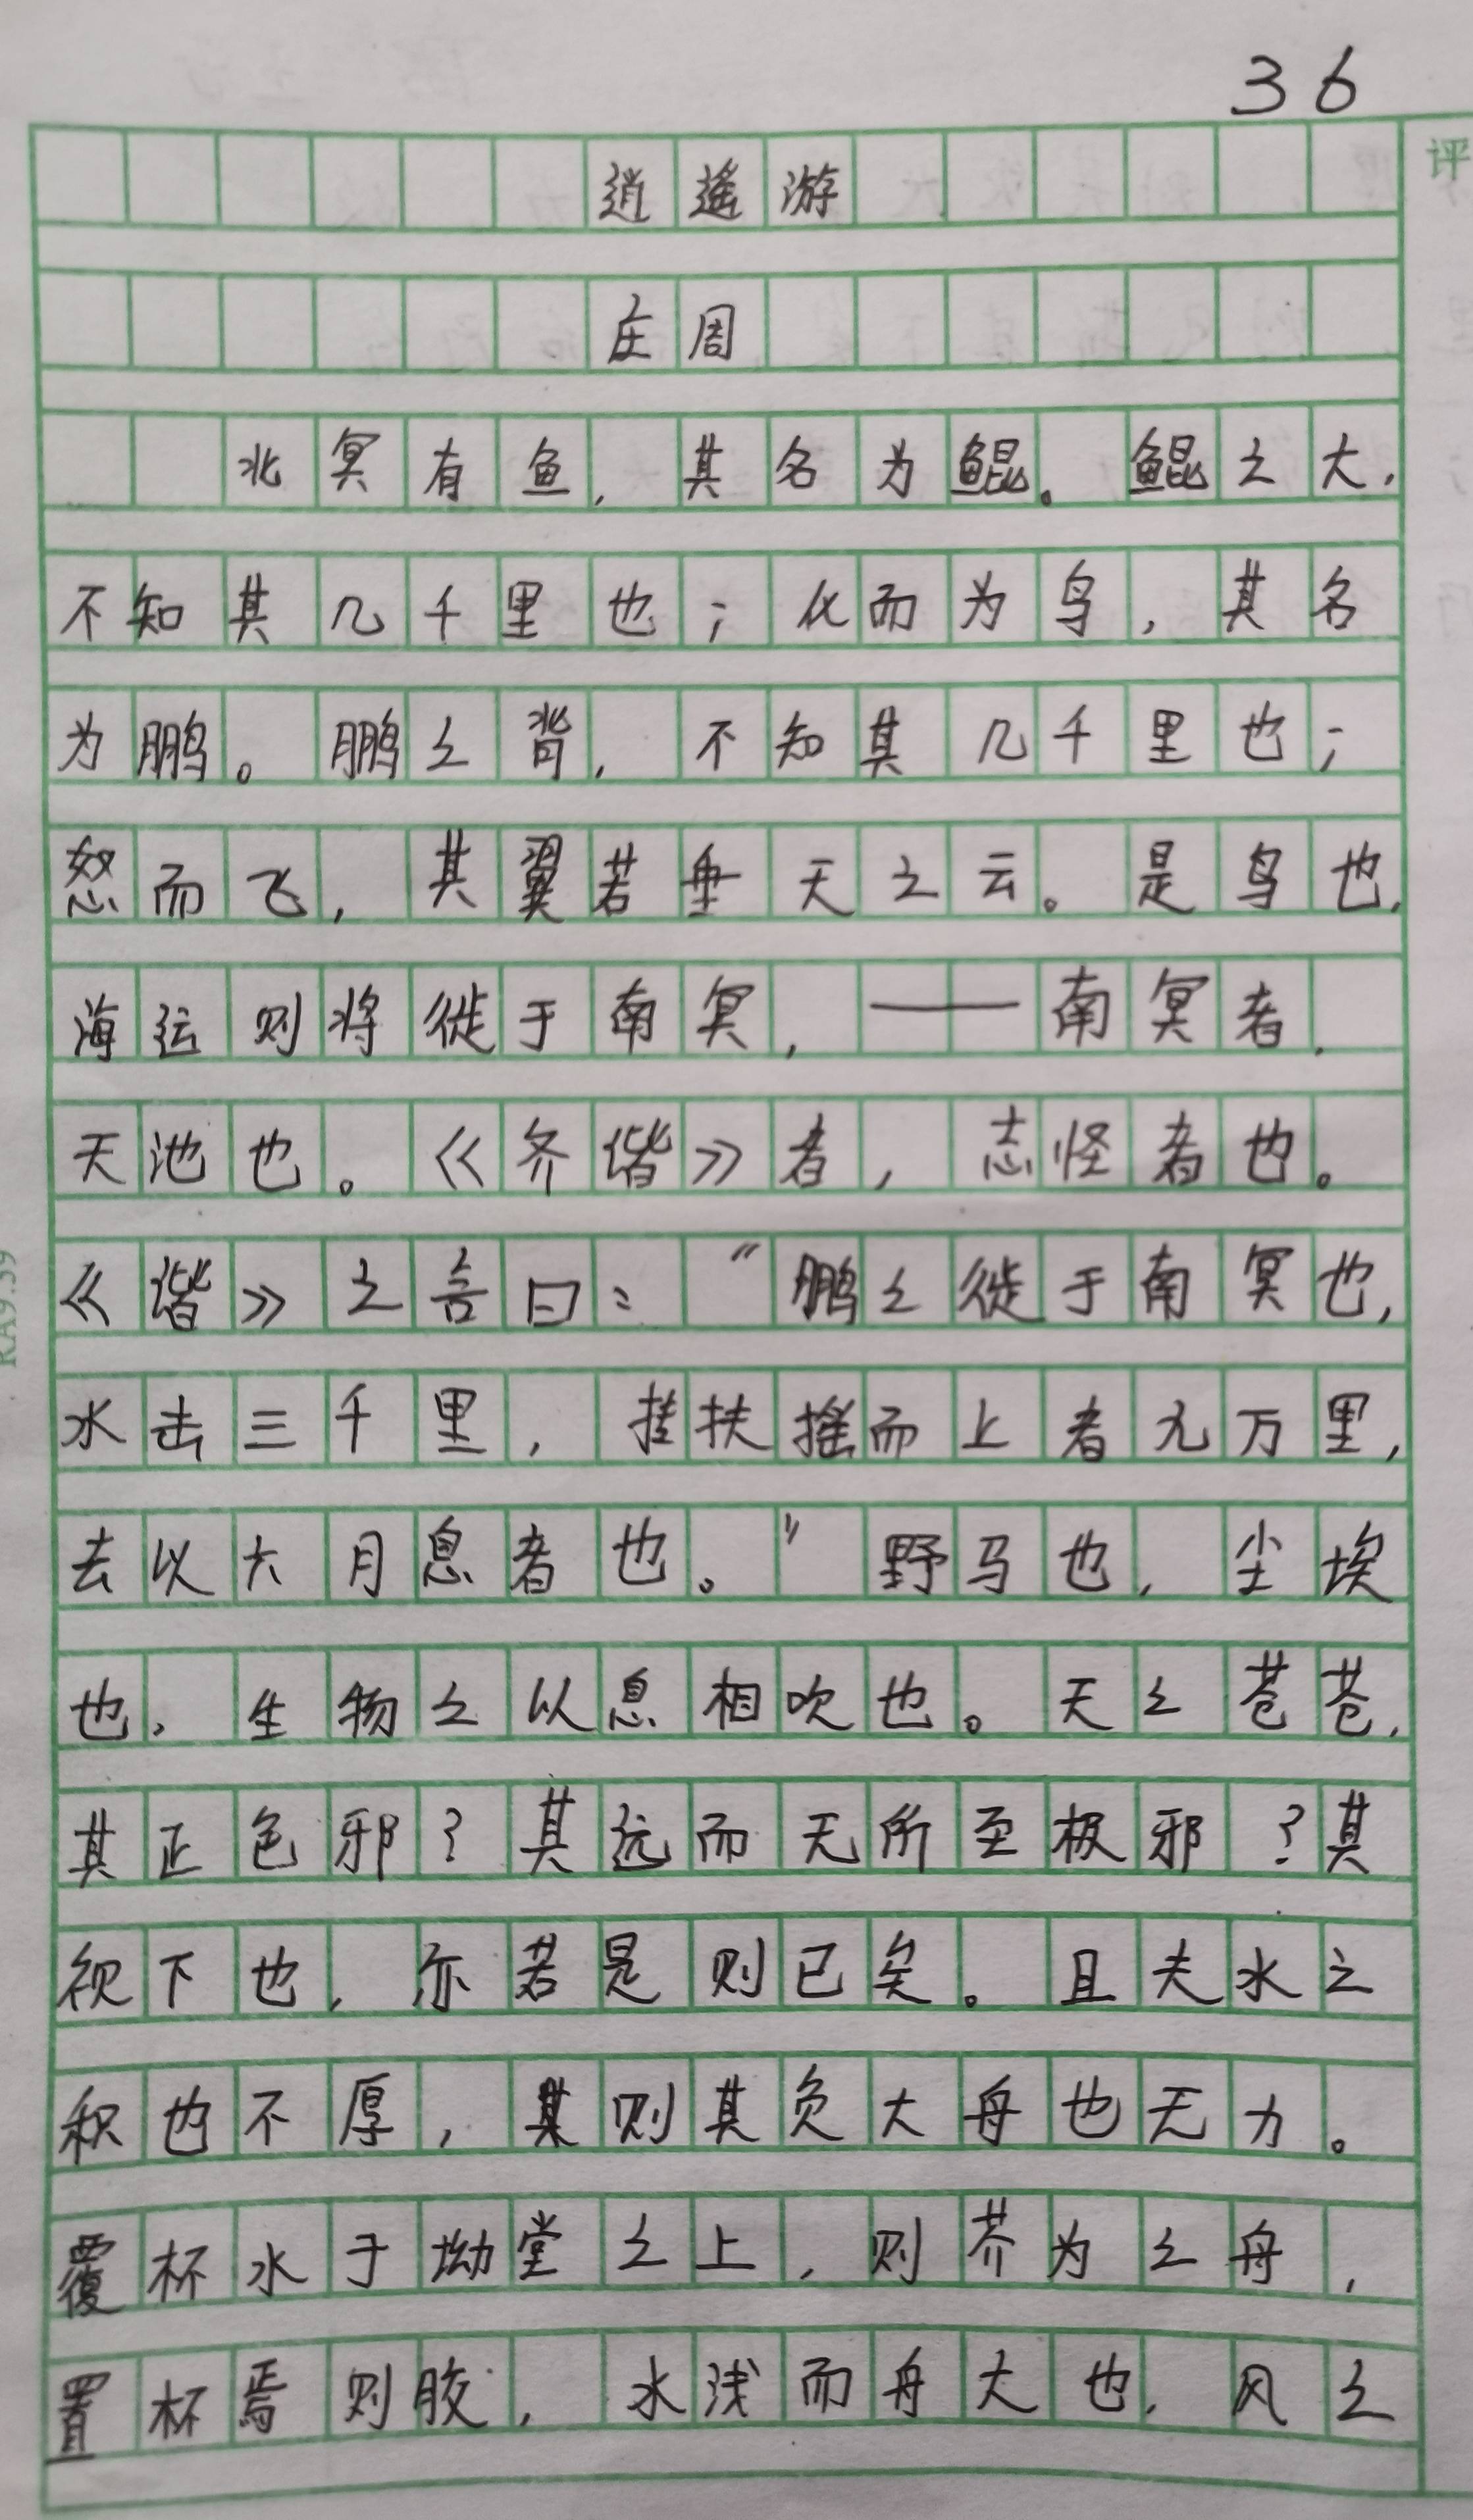 36
评
逍遥游
庄周
北冥有鱼，其名为鲲。鲲之大，
不知其几千里也；化而为鸟，其名
为鹏。鹏之背，不知其几千里也；
怒而飞，其翼若垂天之云。是鸟也，
海运则将徙于南冥，——南冥者，
天池也。《齐谐》者，志怪者也。
《谐》之言曰：“鹏之徙于南冥也，
水击三千里，抟扶摇而上者九万里，
去以六月息者也。”野马也，尘埃
也，生物之以息相吹也。天之苍苍，
其正色邪？其远而无所至极邪？其
视下也，亦若是则已矣。且夫水之
积也不厚，则其负大舟也无力。
覆杯水于坳堂之上，则芥为之舟，
置杯焉则胶，水浅而舟大也，风之